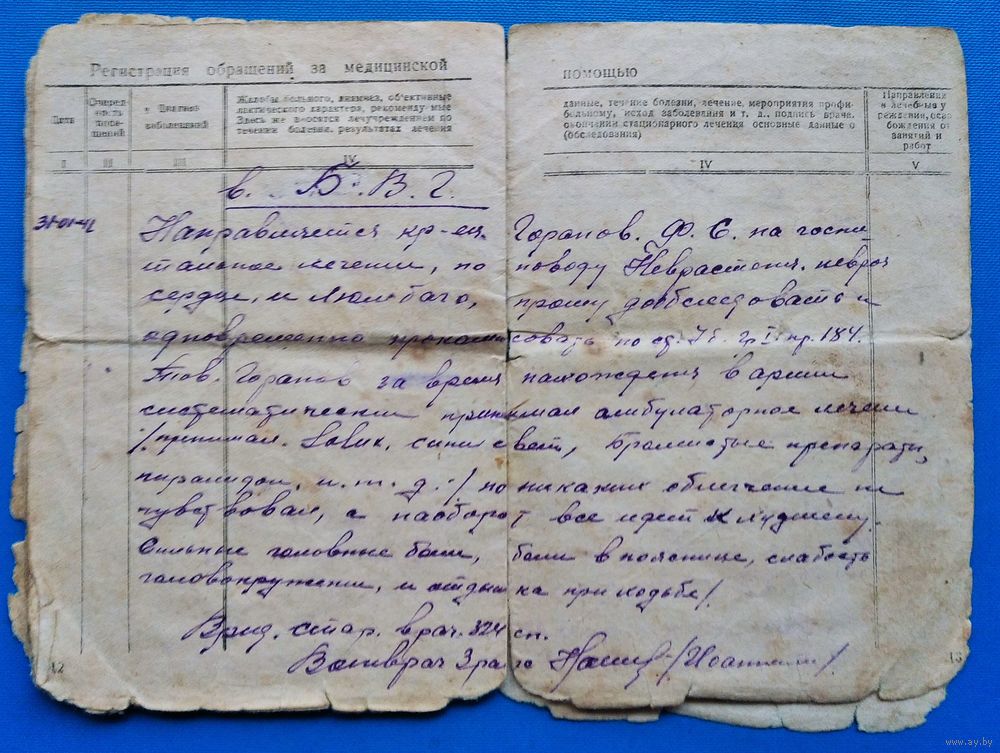 Регистрация обращений за медицинской помощью
Дата
Очеред-ность посе-щений
Диагноз заболеваний
Жалобы больного, анамнез, объективные данные, течение болезни, лечение, мероприятия профи-
лактического характера, рекомендуемые больному, исход заболевания и т. д., подпись врача.
Здесь же вносятся лечучреждением по окончании стационарного лечения основные данные о
течении болезни, результатах лечения (обследования)
Направления
в лечебные у
реждения, осво
бождения от
занятий и
работ
I II III IV IV V
в. Б. В. Г.
31-01-42 Направляется кр-ец. Горапов. Ф. С. на госпи
тальное лечение, по поводу Неврастения, невроз
сердца, и Люмбаго, прошу дообследовать и
одновременно прокомиссовать по ст. 75. гр I. пр. 184.
Тов. Горапов за время нахождения в армии
систематически принимал амбулаторное лечение
/принимал. синий свет, Бромистые препараты,
пирамидон, и. т. д./ но никаких облегчение не
чувствовал, а наоборот все идет к худшему.
Сильные головные боли, боли в пояснице, слабость
головокружение, и отдышка при ходьбе/.
Врид. стар. врач. 324 сп.
Военврач 3 ранга
12 13
www.ay.by